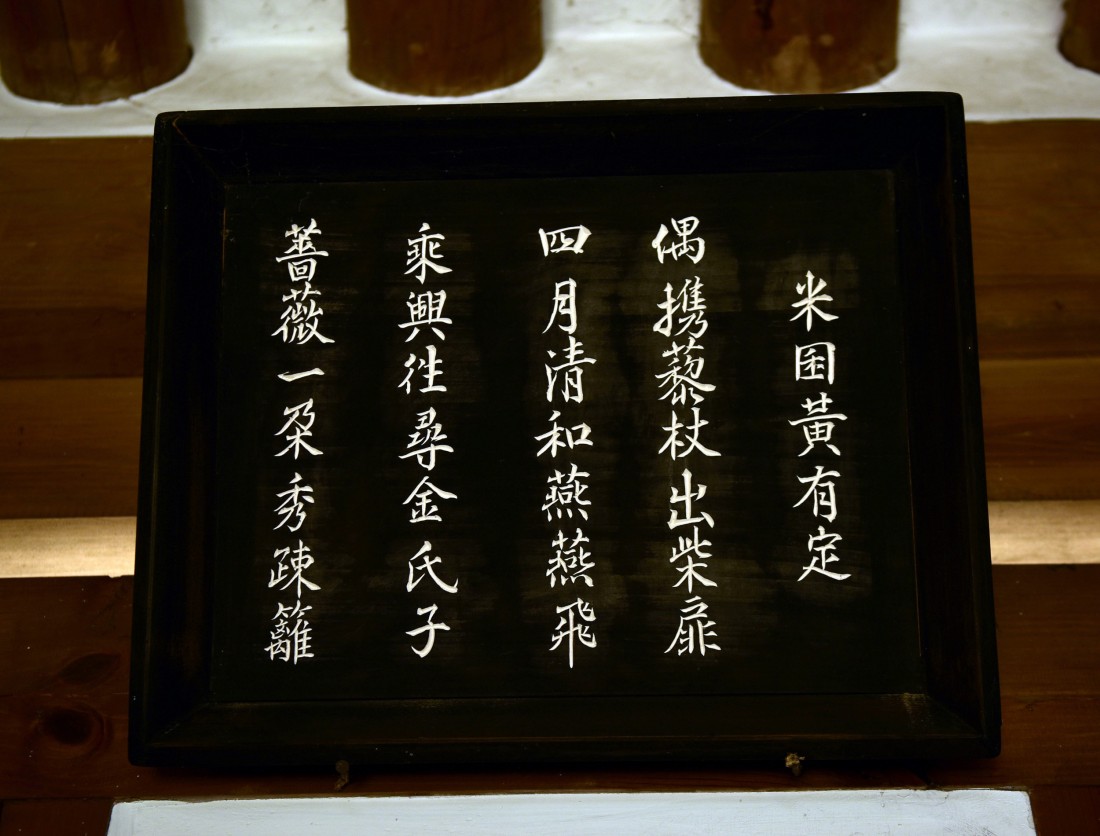 米囷黃有定
偶携藜杖出柴扉
四月清和燕燕飛
乘興徃尋金氏子
薔薇一朶秀踈籬